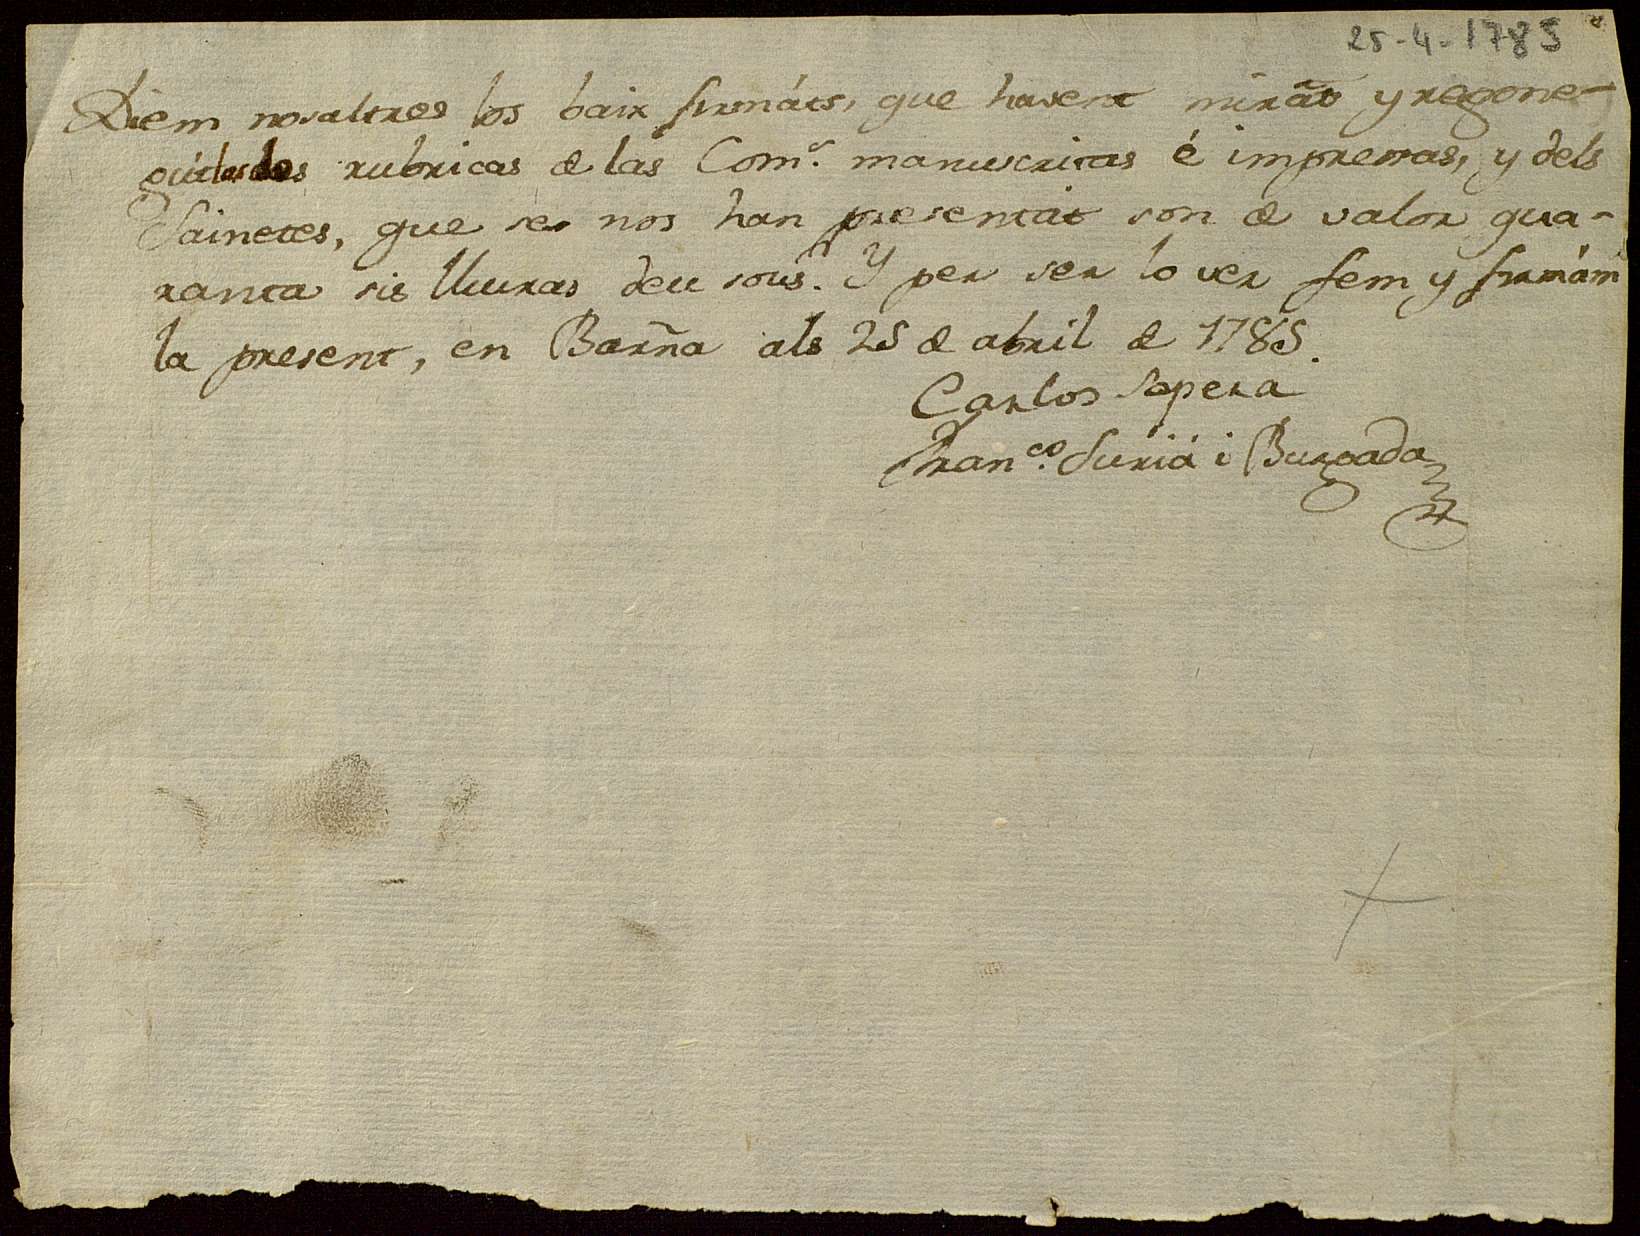 25-4-1785
Diem nosaltres los baix firmáts, que havent mirát y regone-
gút las rubricas de las Com.s manuscritas é impresas, y dels
Sainetes, que se nos han presentát son de valor qua-
ranta sis lliuras deu sous. Y per ser lo ver fem y firmám
la present, en Barña als 25 de abril de 1785.
Carlos Sapera
Fran.co Suriá i Burgada